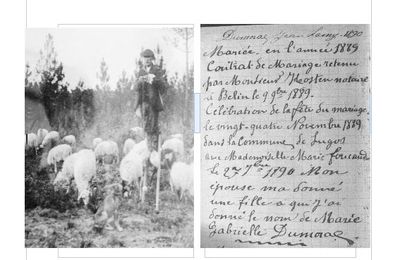 Dumora Jean 1890
Mariée en l'année 1889
Contrat de Mariage retenu
par Monsieur notaire
à Belin le 9 9bre 1889.
Célébration de la fête du mariage
le vingt-quatre Novembre 1889
dans la Commune de Lugos
avec Mademoiselle Marie
le 27 1890 Mon
épouse ma donné
une fille a qui j'ai
donné le nom de Marie
Gabrielle Dumora